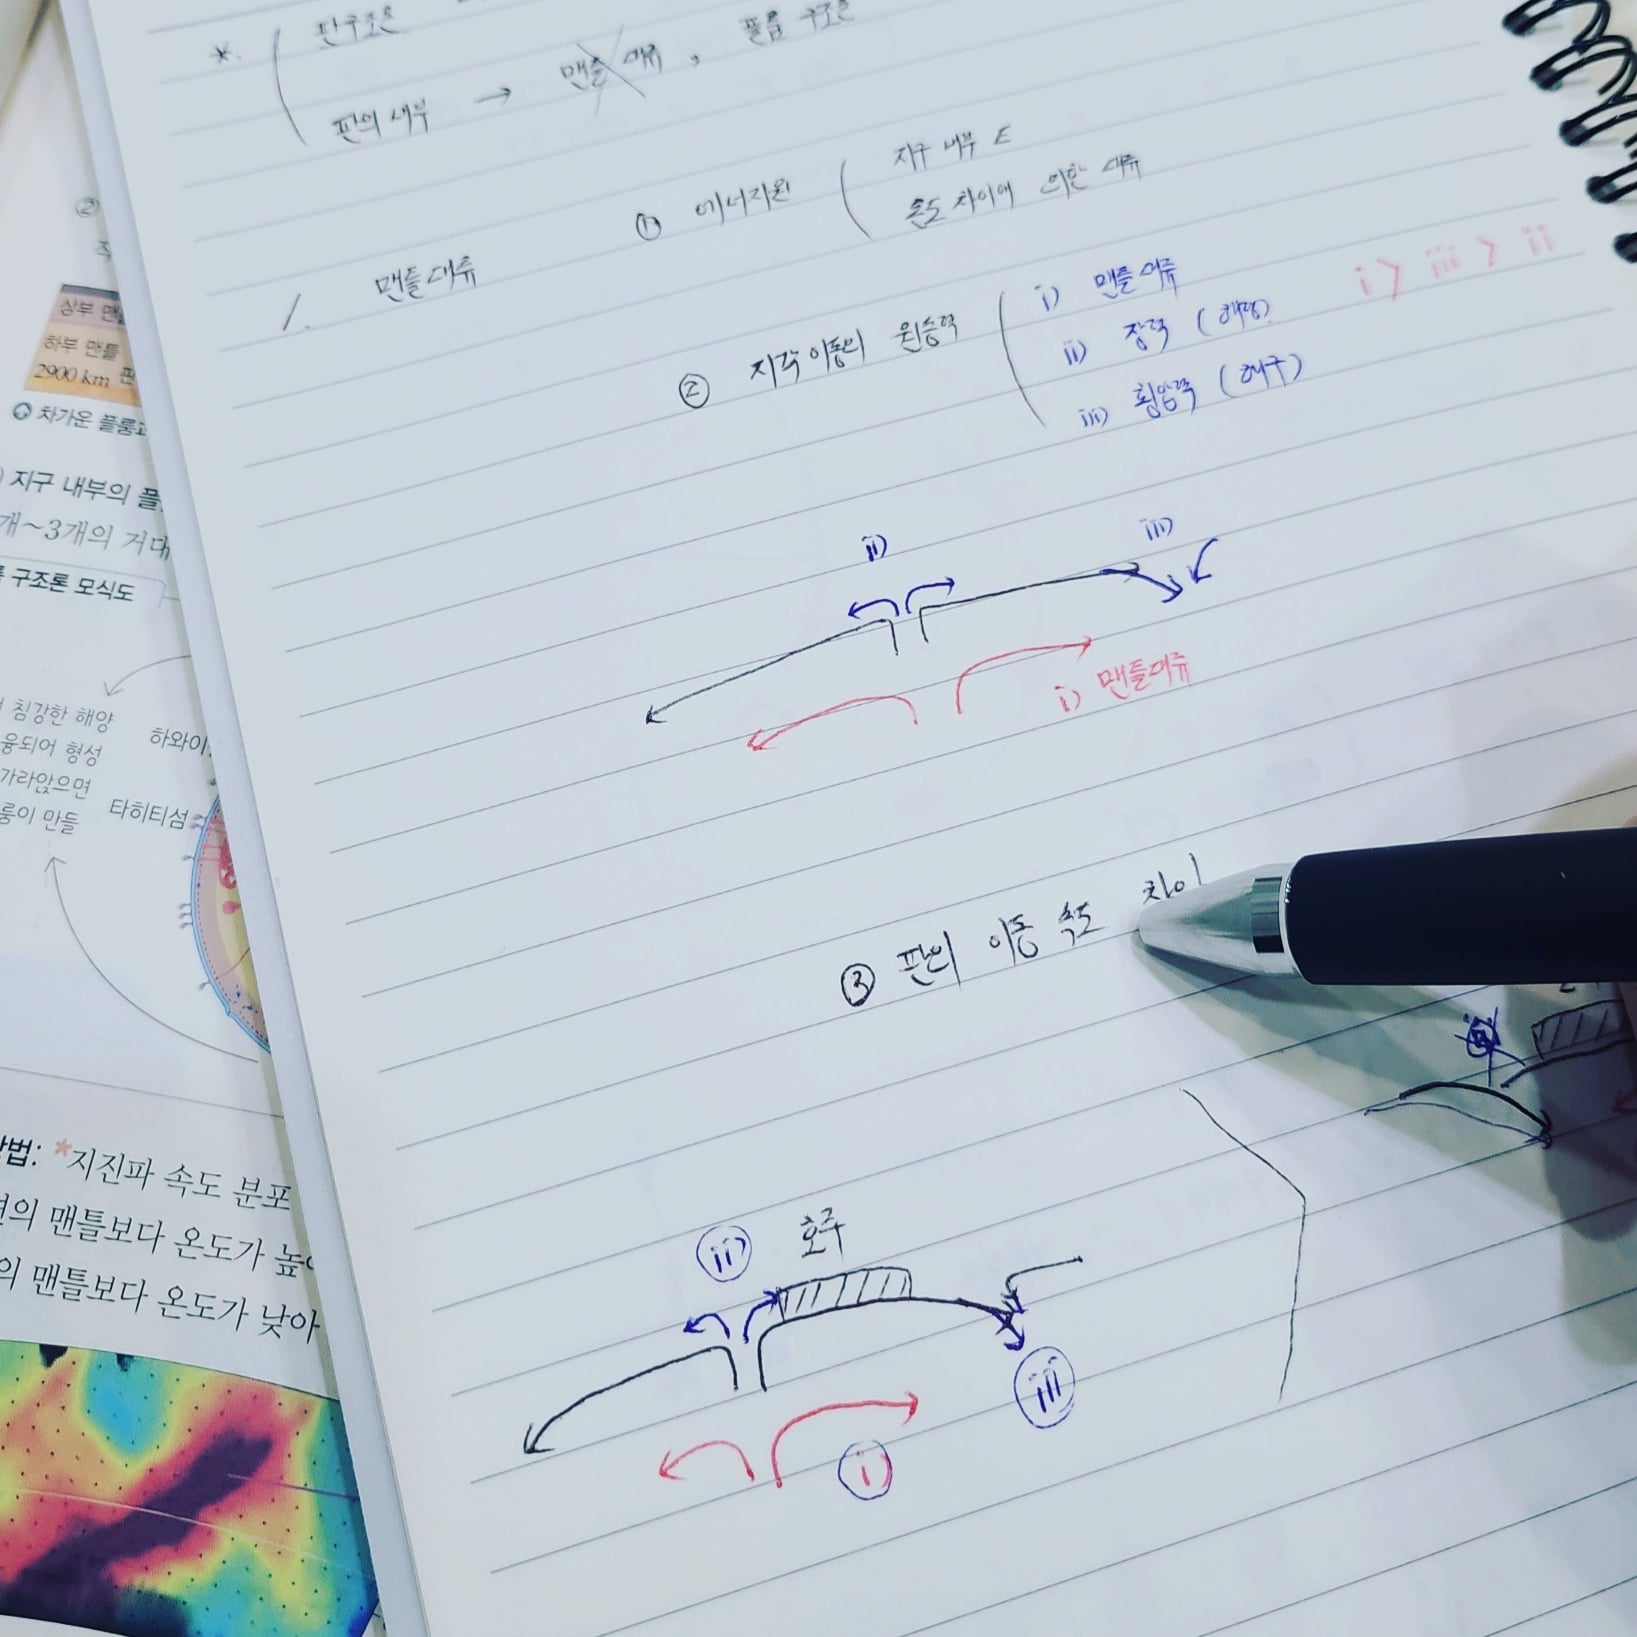 *. 판구조론
판의 내부 → 맨틀 대류, 플룸 구조론
1. 맨틀대류
① 에너지원
지구 내부 E
온도 차이에 의한 대류
② 지각 이동의 원동력
i) 맨틀대류
ii) 장력 (해령)
iii) 횡압력 (해구)
i > iii > ii
ii)
iii)
i) 맨틀대류
③ 판의 이동 속도 차이
ii) 호주
iii
i)
②
상부 맨틀
하부 맨틀
2900 km 판
차가운 플룸과
) 지구 내부의 플
개~3개의 거대
구조론 모식도
침강한 해양
융되어 형성
가라앉으면
룸이 만들
하와이
타히티섬
법: *지진파 속도 분포
의 맨틀보다 온도가 높아
의 맨틀보다 온도가 낮아